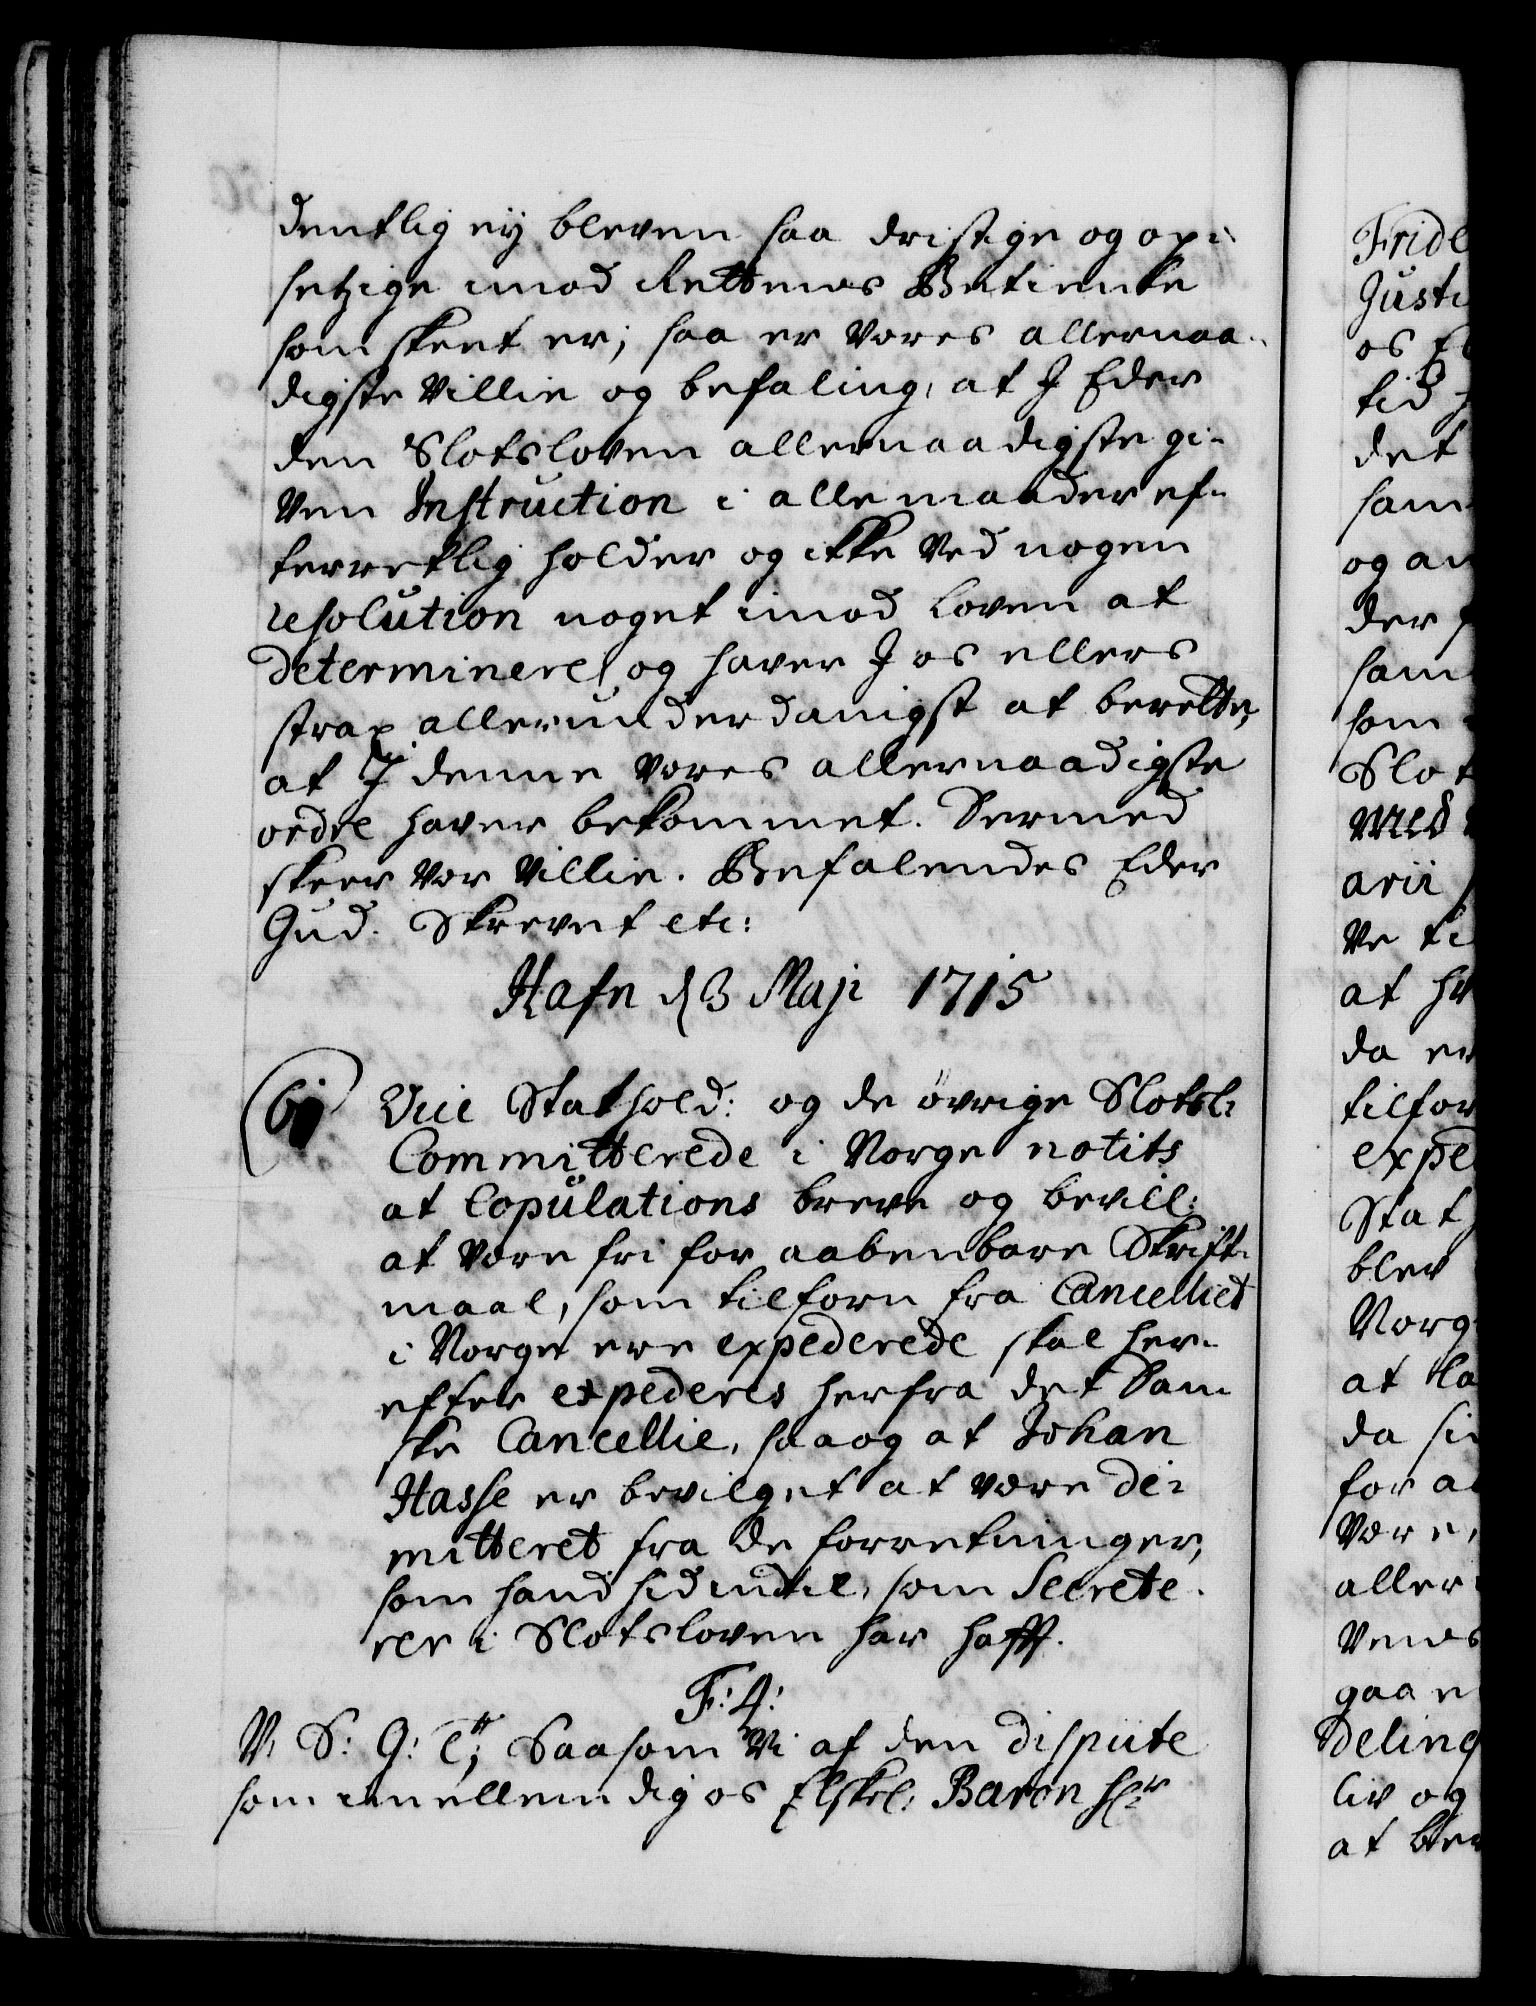 dentlig ej bleven saa dristige og op-
setzige imod Rettens Betiente
som skeet er; saa er vores allernaa-
digste Villie og befaling, at J Eder
den Slotsloven allernaadigste gi-
ven Instruction i alle maader ef-
terretlig holder og ikke ved nogen
resolution noget imod loven at
determinere, og haver J os ellers
strax allerunderdanigst at berette,
at J denne vores allernaadigste
ordre haver bekommet. Dermed
skeer vor Villie. Befalendes Eder
Gud. Skrevet etc:
Hafn d 3 Maji 1715
Vice Stathold: og de övrige Slotsl:
Committerede i Norge notits
at Copulations breve og bevill:
at være fri for aabenbare Skrift-
maal, som tilforn fra Cancelliet
i Norge ere expederede skal her-
efter expederes herfra det Dan-
ske Cancellie, saa og at Johan
Hasse er bevilget at være de-
mitteret fra de forretninger,
som hand hidindtil, som Secrete-
rer i Slotsloven har hafft.
F: 4:
V. S: G: T; Saasom Vi af den dispute
som imellem dig os Elskel: Baron Hr
Fridl
Justi
os El
tid
det
sam
og an
der
sam
som
Slot
med
arii
ve ti
at hv
da er
tilfor
expe
Stath
blev
Norg
at la
da si
for a
være,
aller
venes
gaae
deling
liv og
at ber